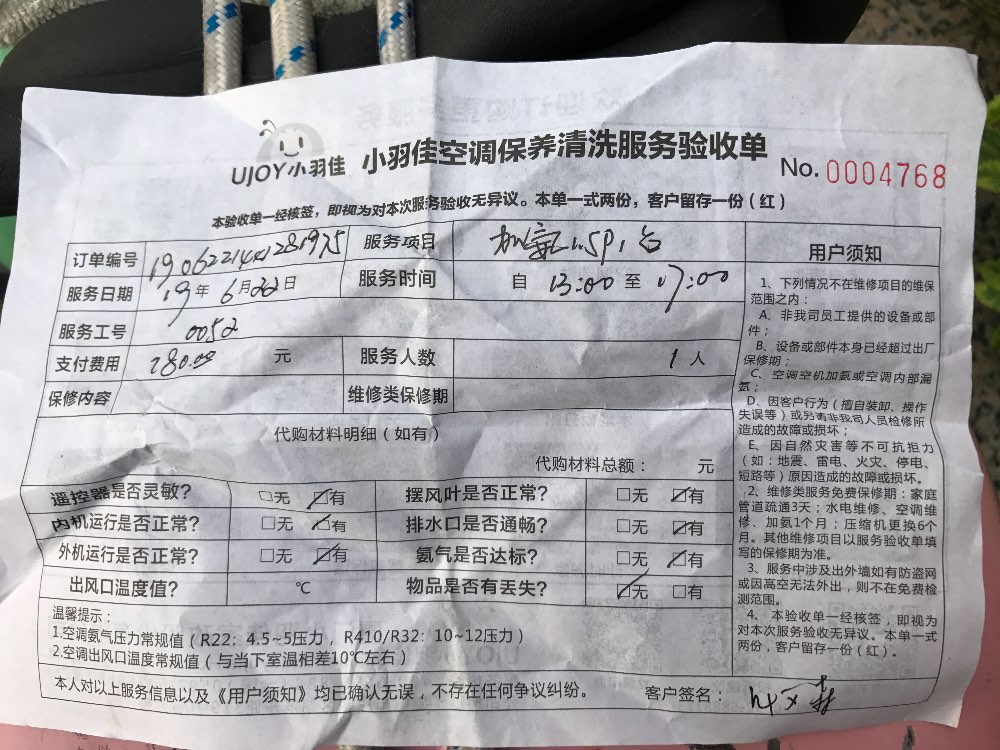 UJOY小羽佳 小羽佳空调保养清洗服务验收单 No.0004768
本验收单一经核签，即视为对本次服务验收无异议。本单一式两份，客户留存一份（红）
订单编号 服务项目 1.5P1台
服务日期 19年6月22日 服务时间 自 13:00 至 17:00
服务工号 0052
支付费用 280.00 元 服务人数 1人
保修内容 维修类保修期
代购材料明细（如有）
代购材料总额： 元
遥控器是否灵敏？ □无 □有 摆风叶是否正常？ □无 □有
内机运行是否正常？ □无 □有 排水口是否通畅？ □无 □有
外机运行是否正常？ □无 □有 氨气是否达标？ □无 □有
出风口温度值？ ℃ 物品是否有丢失？ □无/□有
温馨提示：
1.空调氨气压力常规值（R22：4.5~5压力，R410/R32：10~12压力）
2.空调出风口温度常规值（与当下室温相差10℃左右）
本人对以上服务信息以及《用户须知》均已确认无误，不存在任何争议纠纷。 客户签名：
用户须知
1、下列情况不在维修项目的维保
范围之内：
A、非我司员工提供的设备或部
件；
B、设备或部件本身已经超过出厂
保修期；
C、空调空机加氨或空调内部漏
氨；
D、因客户行为（擅自装卸、操作
失误等）或另请非我司人员检修所
造成的故障或损坏；
E、因自然灾害等不可抗拒力
（如：地震、雷电、火灾、停电、
短路等）原因造成的故障或损坏。
2、维修类服务免费保修期：家庭
管道疏通3天；水电维修、空调维
修、加氨1个月；压缩机更换6个
月。其他维修项目以服务验收单填
写的保修期为准。
3、服务中涉及出外墙如有防盗网
或因高空无法外出，则不在免费检
测范围。
4、本验收单一经核签，即视为
对本次服务验收无异议。本单一式
两份，客户留存一份（红）。